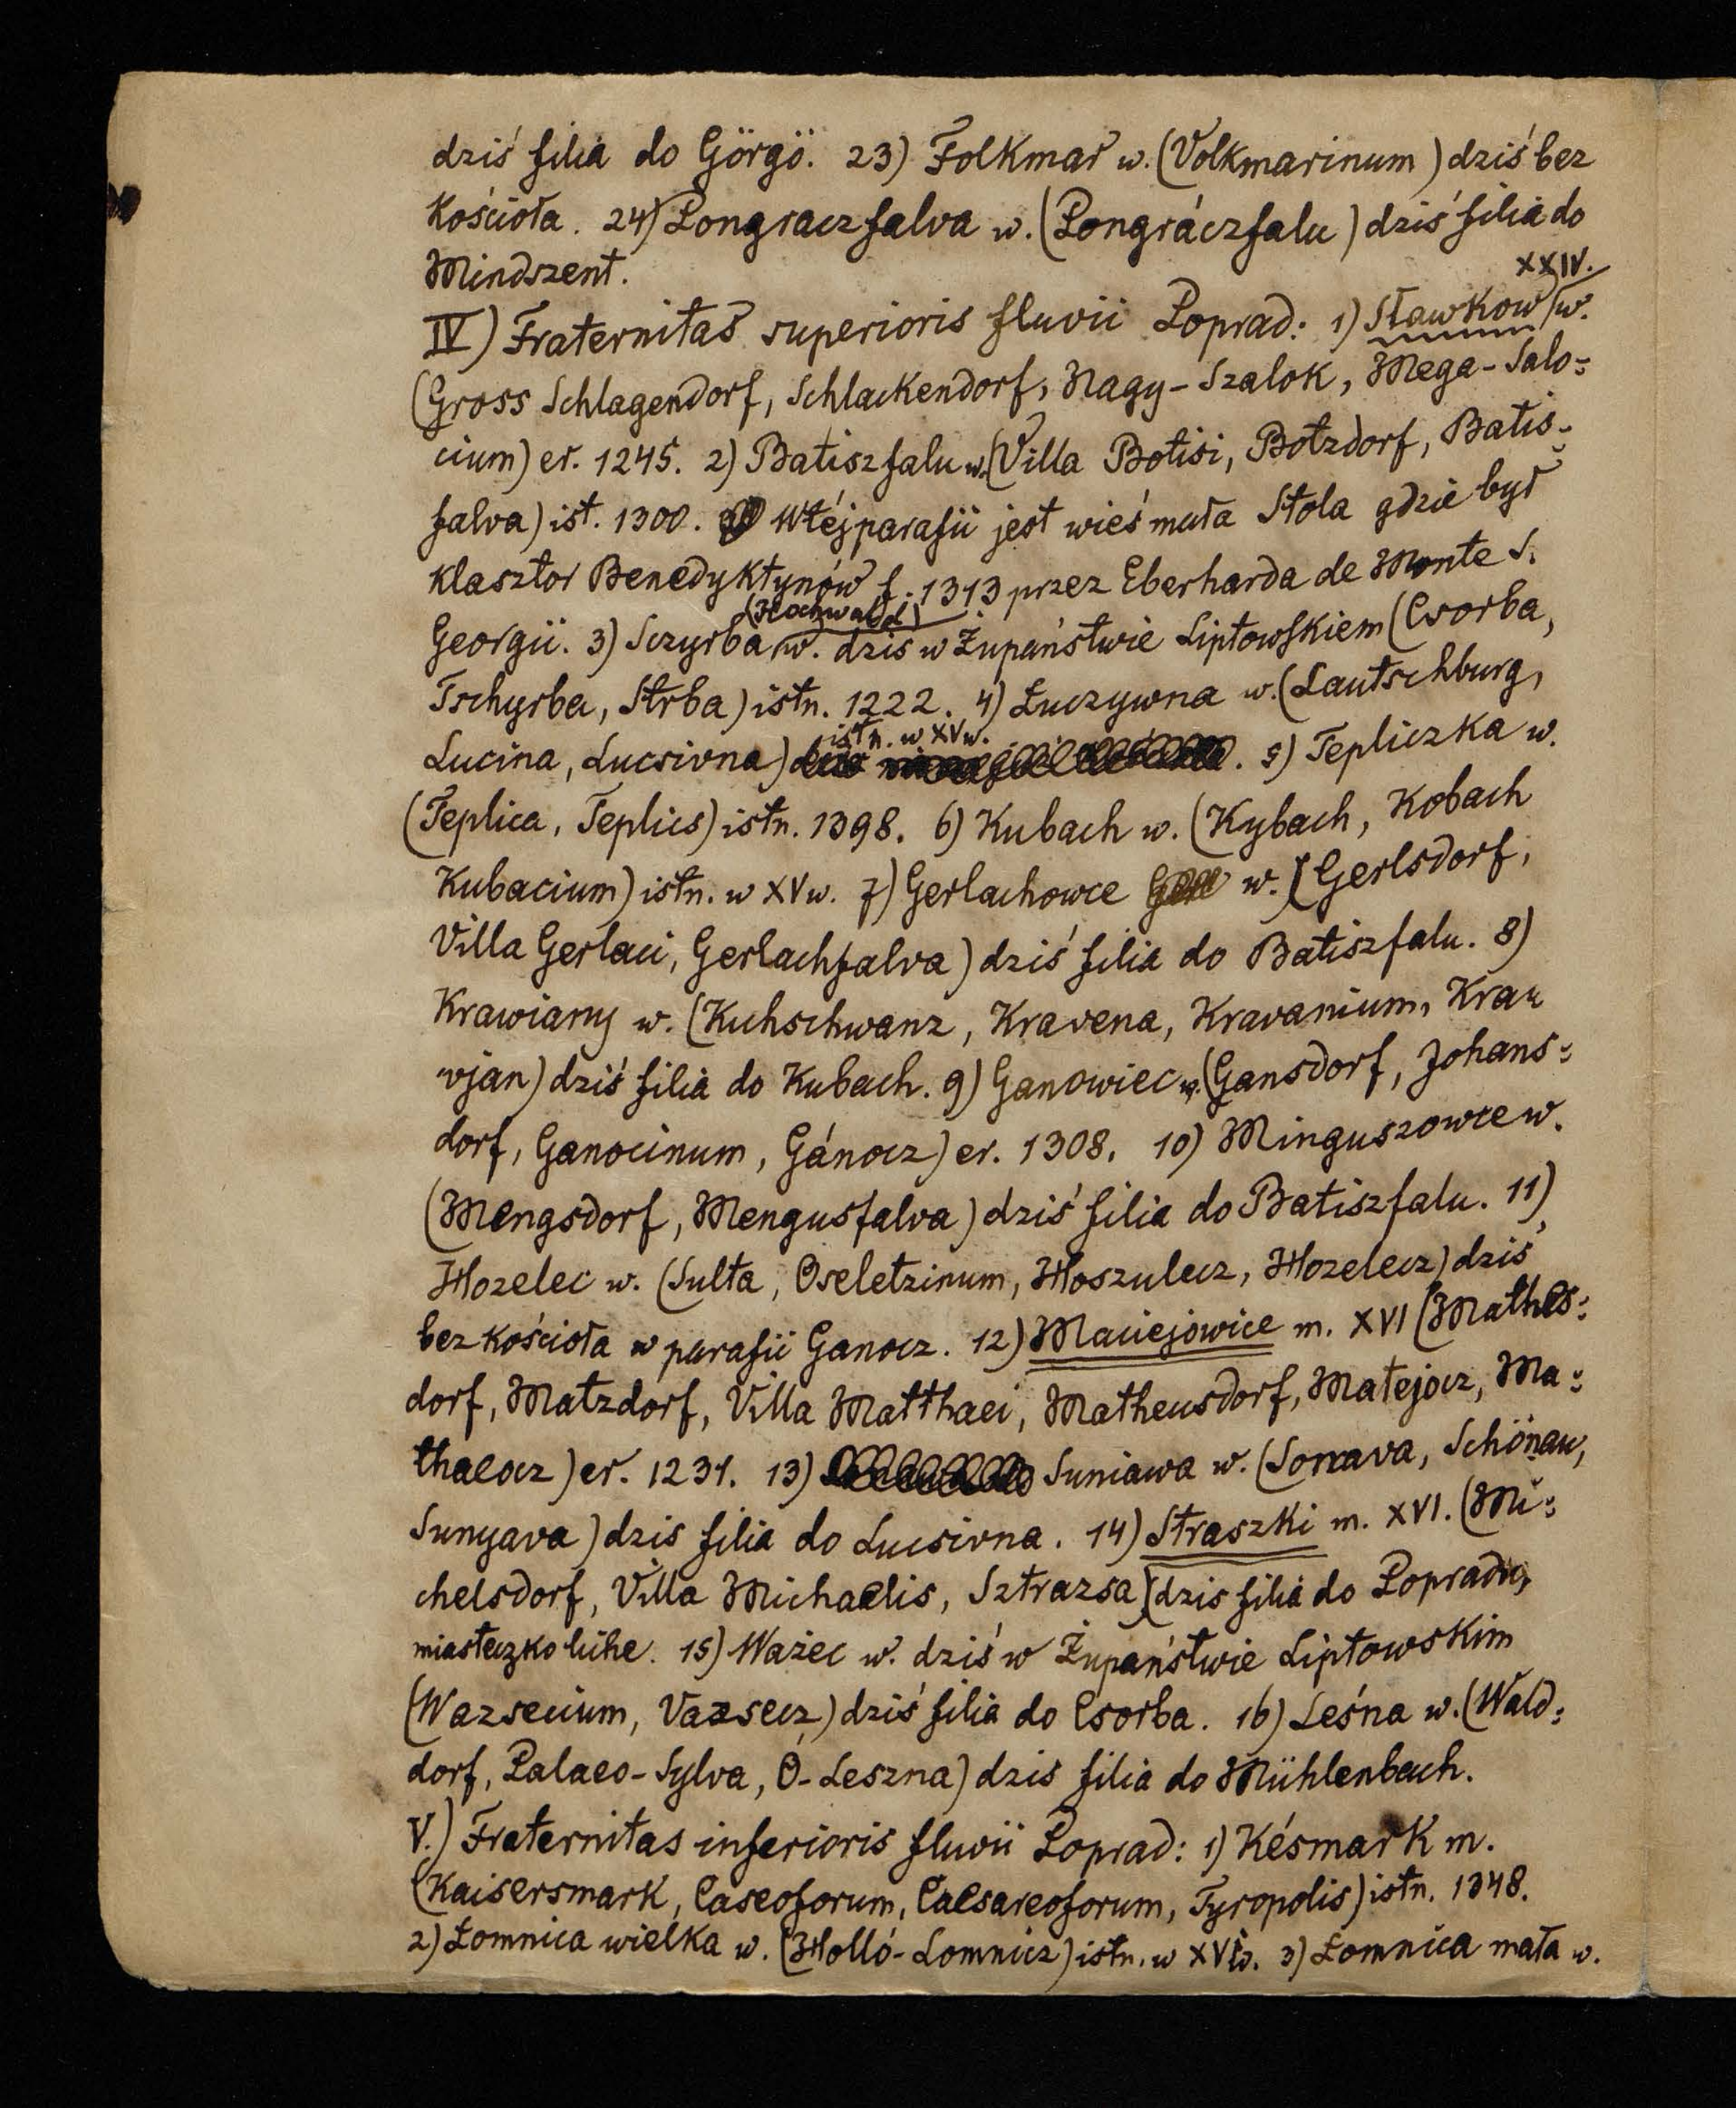 dziś filia do Görgö. 23) Folkmar w. (Volkmarinum) dziś bez
kościoła. 24) Pongraczfalva w. (Pongráczfalu) dziś filia do
Mindszent.
XXIV.
IV) Fraternitas superioris fluvii Poprad: 1) Sławkow w.
(Gross Schlagendorf, Schlackendorf, Nagy-Szalok, Mega-Salo-
cium) er. 1245. 2) Batiszfalu w. (Villa Botisi, Botzdorf, Batis-
falva) ist. 1300. W téj parafii jest wieś mała Stola gdzie był
klasztor Benedyktynów f. 1313 przez Eberharda de Monte S.
(Hochwald)
Georgii. 3) Sczyrba w. dziś w Żupaństwie Liptowskiem (Csorba,
Tschyrba, Strba) istn. 1222. 4) Łuczywna w. (Lautschburg,
istn. w XV w.
Lucina, Lucsivna) . 5) Tepliczka w.
(Teplica, Teplics) istn. 1398. 6) Kubach w. (Kybach, Kobach
Kubacium) istn. w XV w. 7) Gerlachowce w. (Gerlsdorf,
Villa Gerlaci, Gerlachfalva) dziś filia do Batiszfalu. 8)
Krawiany w. (Kuhschwanz, Kravena, Kravanium, Kra-
vjan) dziś filia do Kubach. 9) Ganowiec w. (Gansdorf, Johans-
dorf, Ganocinum, Gánocz) er. 1308. 10) Minguszowce w.
(Mengsdorf, Mengusfalva) dziś filia do Batiszfalu. 11)
Hozelec w. (Sulta, Oseletzinum, Hoszulecz, Hozelecz) dziś
bez kościoła w parafii Ganocz. 12) Maciejowice m. XVI (Mathes-
dorf, Matzdorf, Villa Matthaei, Matheusdorf, Matejocz, Ma-
thaeocz) er. 1231. 13) Suniawa w. (Sonava, Schönau,
Sunyava) dzis filia do Lucsivna. 14) Straszki m. XVI. (Mi-
chelsdorf, Villa Michaelis, Sztrazsa) (dzis filia do Popradu,
miasteczko liche. 15) Ważec w. dziś w Żupaństwie Liptowskim
(Wazsecium, Vazsecz) dziś filia do Csorba. 16) Leśna w. (Wald-
dorf, Palaeo-Sylva, Ó-Leszna) dzis filia do Mühlenbach.
V.) Fraternitas inferioris fluvii Poprad: 1) Késmark m.
(Kaisersmark, Caseoforum, Caesareoforum, Tyropolis) istn. 1348.
2) Łomnica wielka w. (Holló-Lomnicz) istn. w XV w. 3) Łomnica mała w.